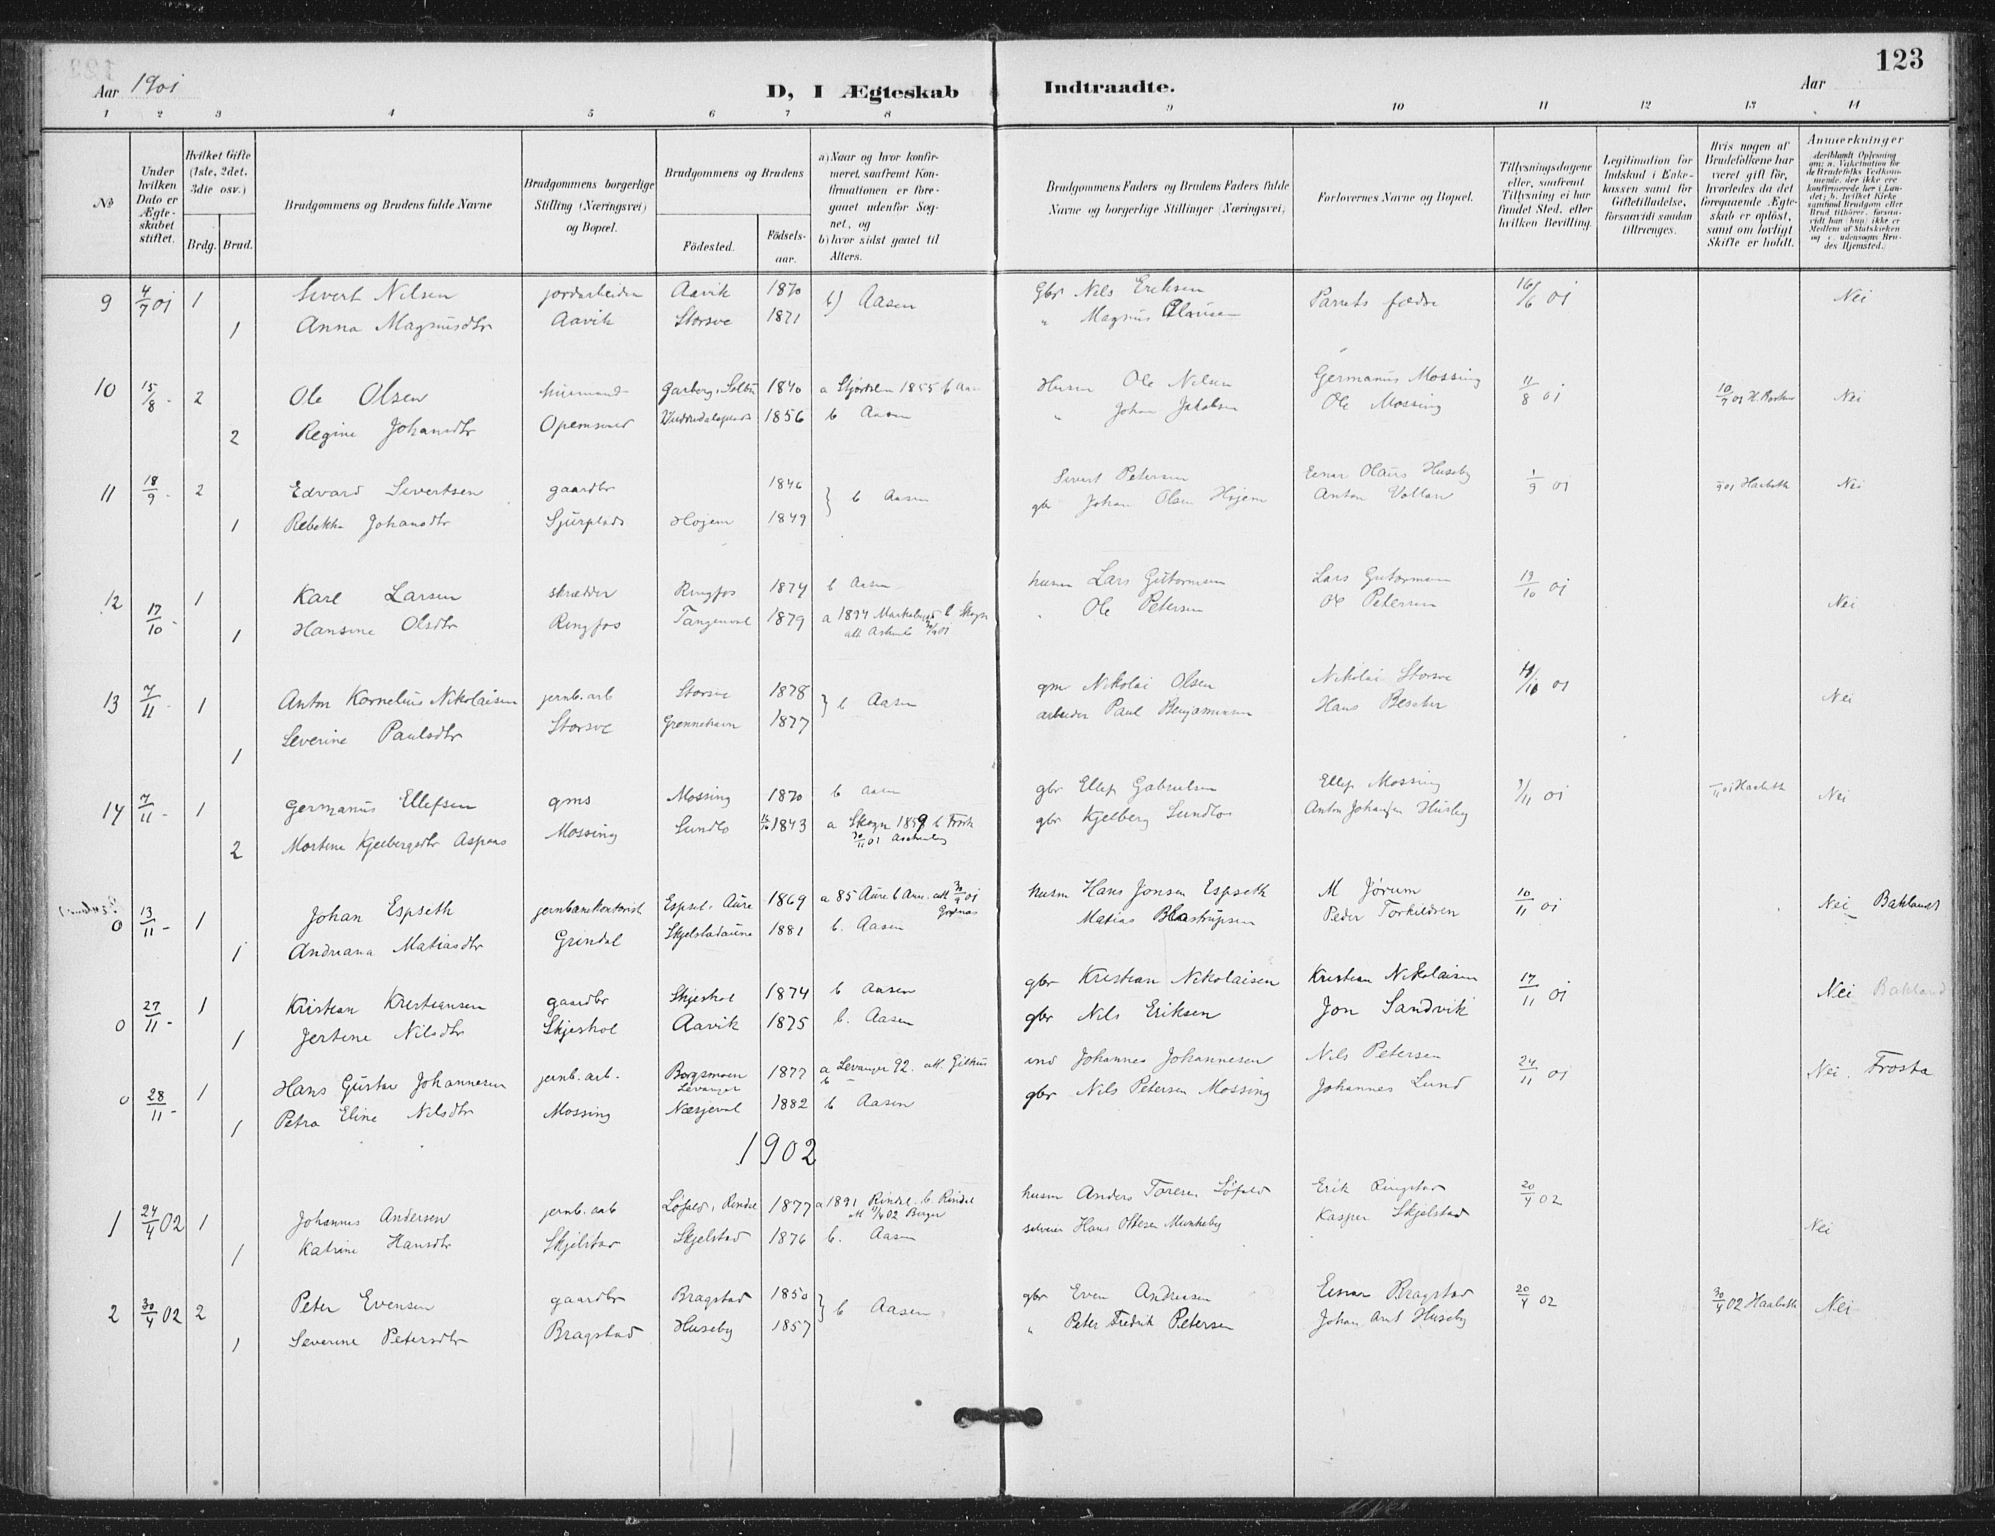 123
Aar 1901
D, I Ægteskab Indtraadte.
Aar
1 2 3 4 5 6 7 8 9 10 11 12 13 14
No
Under hvilken Dato er Ægteskabet stiftet.
Hvilket Gifte (1ste, 2det, 3die osv.)
Brdg. Brud.
Brudgommens og Brudens fulde Navne
Brudgommens borgerlige Stilling (Næringsvei) og Bopæl.
Brudgommens og Brudens
Fødested. Fødselsaar.
a) Naar og hvor konfirmeret, saafremt Konfirmationen er foregaaet udenfor Sognet, og
b) hvor sidst gaaet til Alters.
Brudgommens Faders og Brudens Faders fulde Navne og borgerlige Stillinger (Næringsvei)
Forlovernes Navne og Bopæl.
Tillysningsdagene eller, saafremt Tillysning ei har fundet Sted, efter hvilken Bevilling.
Legitimation for Indskud i Enkekassen samt for Giftetilladelse, forsaavidt saadan tiltrænges.
Hvis nogen af Brudefolkene har været gift før, hvorledes da det foregaaende Ægteskab er opløst, samt om lovligt Skifte er holdt.
Anmerkninger
9 4/7 01 1 Sivert Nilsen jordarbeider Aavik 1870 b) Aasen Gbr Nils Eriksen Parrets fædre 16/6 01 Nei
1 Anna Magnusdtr Aavik Storsve 1871 " Magnus
10 15/8 - 2 Ole Olsen husmand Garberg, Selbu 1840 a Stjørdalen 1855 b Aasen Husm Ole Nilsen Germanus Mossing 11/8 01 Nei
2 Regine Johansdtr 1856 b Aasen " Johan Jakobsen Ole Mossing
11 18/9 - 2 Edvard Sivertsen gaardbr 1846 b Aasen Sivert Petersen Einar Olaus Huseby 1/9 01 Nei
1 Rebekka Johansdtr Sjurplads Højem 1849 gbr Johan Olsen Højem Anton Vollan
12 17/10 - 1 Karl Larsen skrædder Ringfos 1874 b Aasen husm Lars Guttormsen Lars Guttormsen 13/10 01 Nei
1 Hansine Olsdtr Ringfos 1879 a 1894 b Skogn " Ole Petersen Ole Petersen
13 7/11 - 1 Anton Kornelius Nikolaisen jernb. arb Storsve 1878 b Aasen gm Nikolai Olsen Nikolai Storsve 01 Nei
1 Severine Paulsdtr Storsve 1877 arbeider Paul Benjaminsen Hans
14 7/11 - 1 Germanus Ellefsen gms Mossing 1870 b Aasen gbr Ellef Gabrielsen Ellef Mossing 01 Nei
2 Mortine Kjelbergsdtr Aspaas Mossing Sundlo 1843 a Skogn 1859 b gbr Kjelberg Sundlo Anton Johansen Huseby
0 13/11 - 1 Johan Espseth jernbanekontorist Espset, Aure 1869 a 85 Aure b husm Hans Jonsen Espseth M Jørum 10/11 01 Nei Baklandt
1 Andriana Matiasdtr Grindal Skjelstadaune 1881 b. Aasen Matias Blastrupsen Peder Torkildsen
0 27/11 - 1 Kristian Kristiansen gaardbr Skjeshol 1874 b Aasen gbr Kristian Nikolaisen Kristian Nikolaisen 17/11 01 Nei Bakland
1 Jertine Nilsdtr Skjeshol Aavik 1875 b. Aasen gbr Nils Eriksen Jon Sandvik
0 28/11 - 1 Hans Gustav Johannesen jernb. arb. Borgsmoen Levanger 1877 a Levanger 92. ind Johannes Johannesen Nils Petersen 24/11 01 Nei. Frosta
1 Petra Eline Nilsdtr Mossing Næsjeval 1882 b Aasen gbr Nils Petersen Mossing Johannes Lund
1902
1 24/4 02 1 Johannes Andersen jernb. arb Løfald, Rindal 1877 a 1891 Rindal. b. Rindal husm Anders Toresen Løfald Erik Ringstad 20/4 02 Nei
1 Katrine Hansdtr Skjelstad Skjelstad 1876 b. Aasen selveier Hans Ottesen Munkeby Kasper Skjelstad
2 30/4 02 2 Peter Evensen gaardbr Bragstad 1850 b Aasen gbr Even Andreasen Einar Bragstad 20/4 02 30/4 02 Nei
1 Severine Petersdtr Bragstad Huseby 1857 " Peter Fredrik Petersen Johan Arnt Huseby